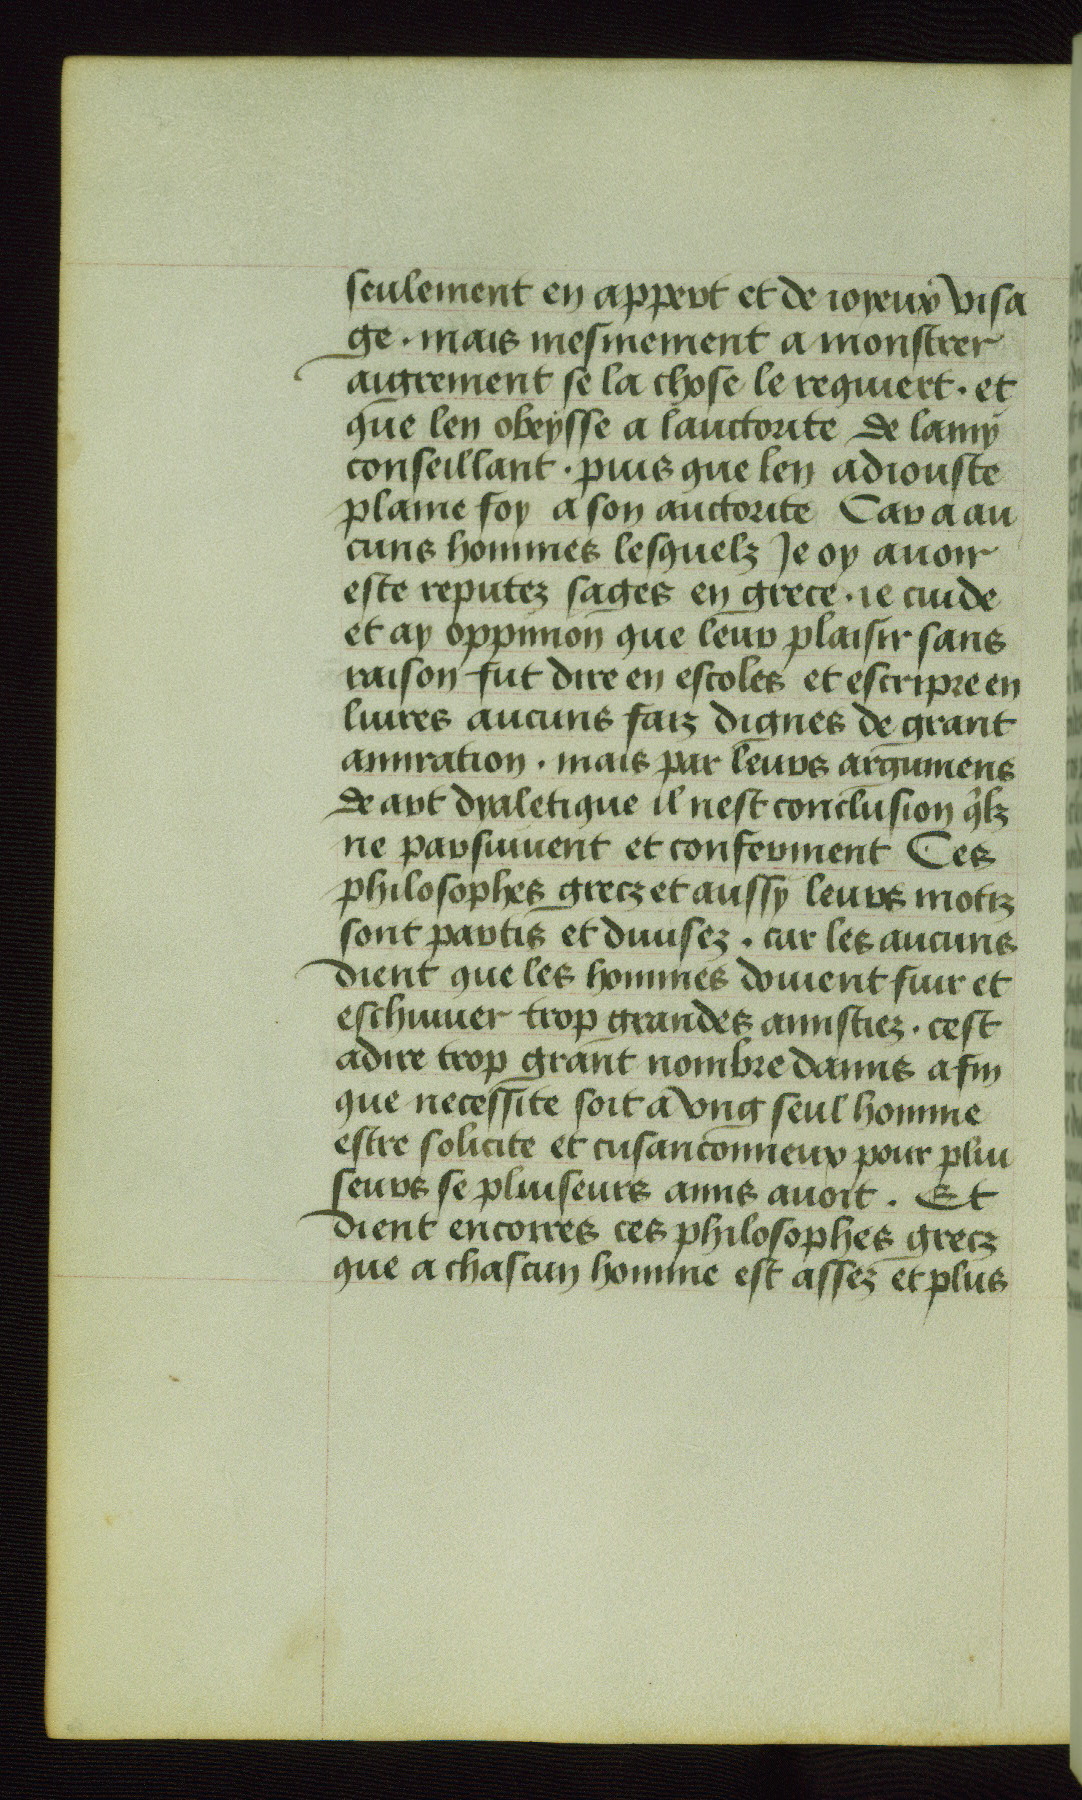 seulement en appert et de ioyeux visa
ge . mais mesmement a monstrer
aigrement se la chose le requiert . et
que len obeysse a lauctorite de lamy
conseillant . puis que len adiouste
plaine foy a son auctorite Car a au
cuns hommes lesquelz Je oy auoir
este reputez sages en grece . ie cuide
et ay oppinion que leur plaisir sans
raison fut dire en escoles et escripre en
liures aucuns faiz dignes de grant
amiration . mais par leurs argumens
de art dyaletique il nest conclusion qlz
ne parsuiuent et conferment Ces
philosophes grecz et aussy leurs motz
sont partis et diuisez . car les aucuns
dient que les hommes doiuent fuir et
eschiuuer trop grandes amistiez . cest
adire trop grant nombre damis afin
que necessite soit a vng seul homme
estre solicite et cusanconneux pour plui
seurs se pluiseurs amis auoit . Et
dient encorres ces philosophes grecz
que a chascun homme est assez et plus